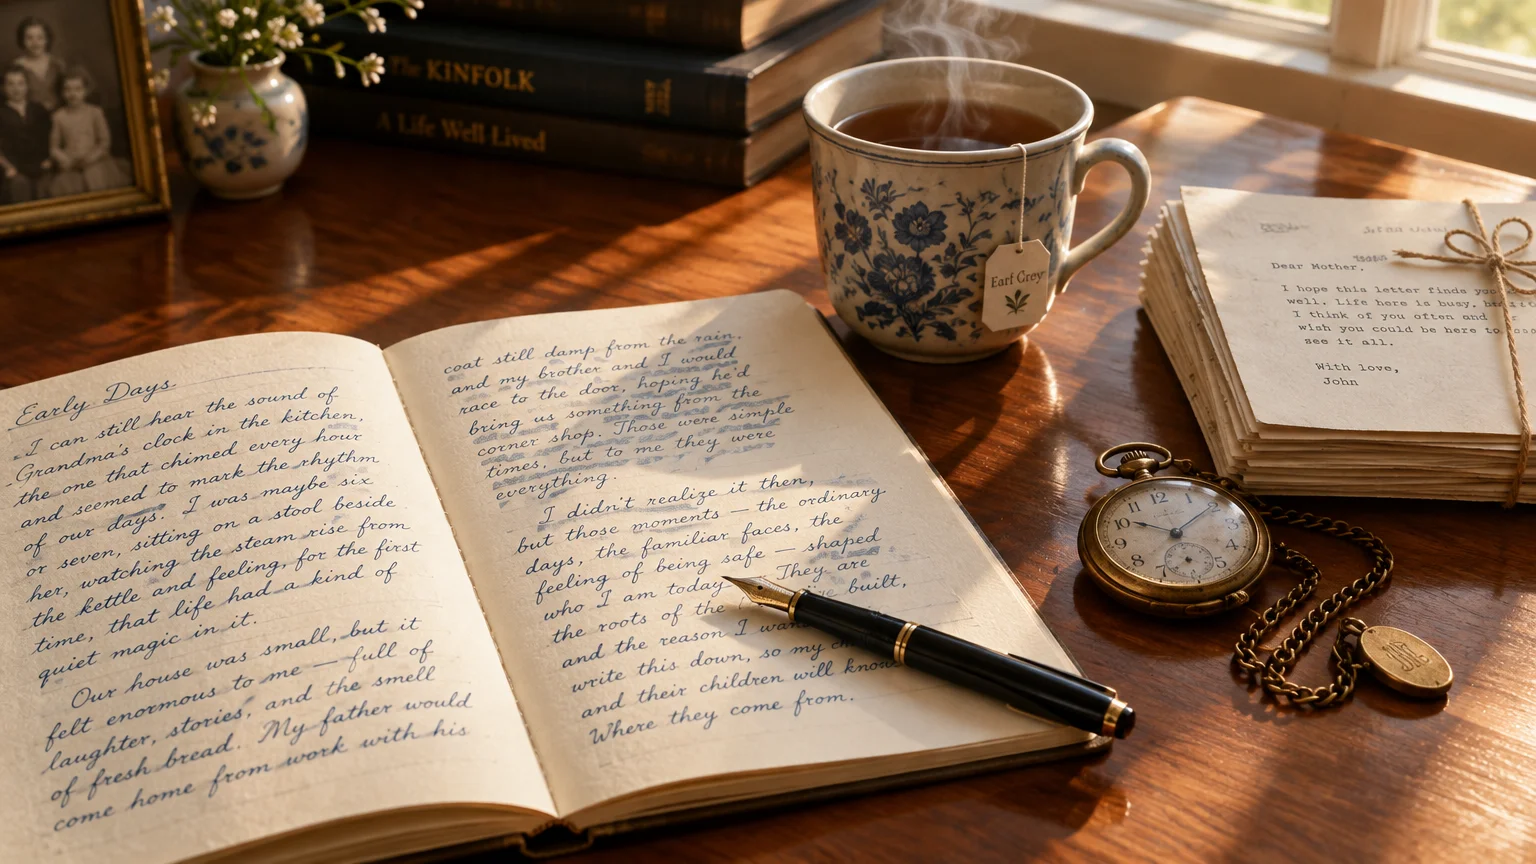 The KINFOLK
A Life Well Lived
Earl Grey
Dear Mother,
I hope this letter finds you
well. Life here is busy, but
I think of you often and
wish you could be here to
see it all.
With love,
John
Early Days
I can still hear the sound of
Grandma's clock in the kitchen,
the one that chimed every hour
and seemed to mark the rhythm
of our days. I was maybe six
or seven, sitting on a stool beside
her, watching the steam rise from
the kettle and feeling, for the first
time, that life had a kind of
quiet magic in it.
Our house was small, but it
felt enormous to me — full of
laughter, stories, and the smell
of fresh bread. My father would
come home from work with his
coat still damp from the rain,
and my brother and I would
race to the door, hoping he'd
bring us something from the
corner shop. Those were simple
times, but to me they were
everything.
I didn't realize it then,
but those moments — the ordinary
days, the familiar faces, the
feeling of being safe — shaped
who I am today. They are
the roots of the built,
and the reason I
write this down, so my
and their children will know
Where they come from.
12
1
2
3
4
5
7
8
9
10
11